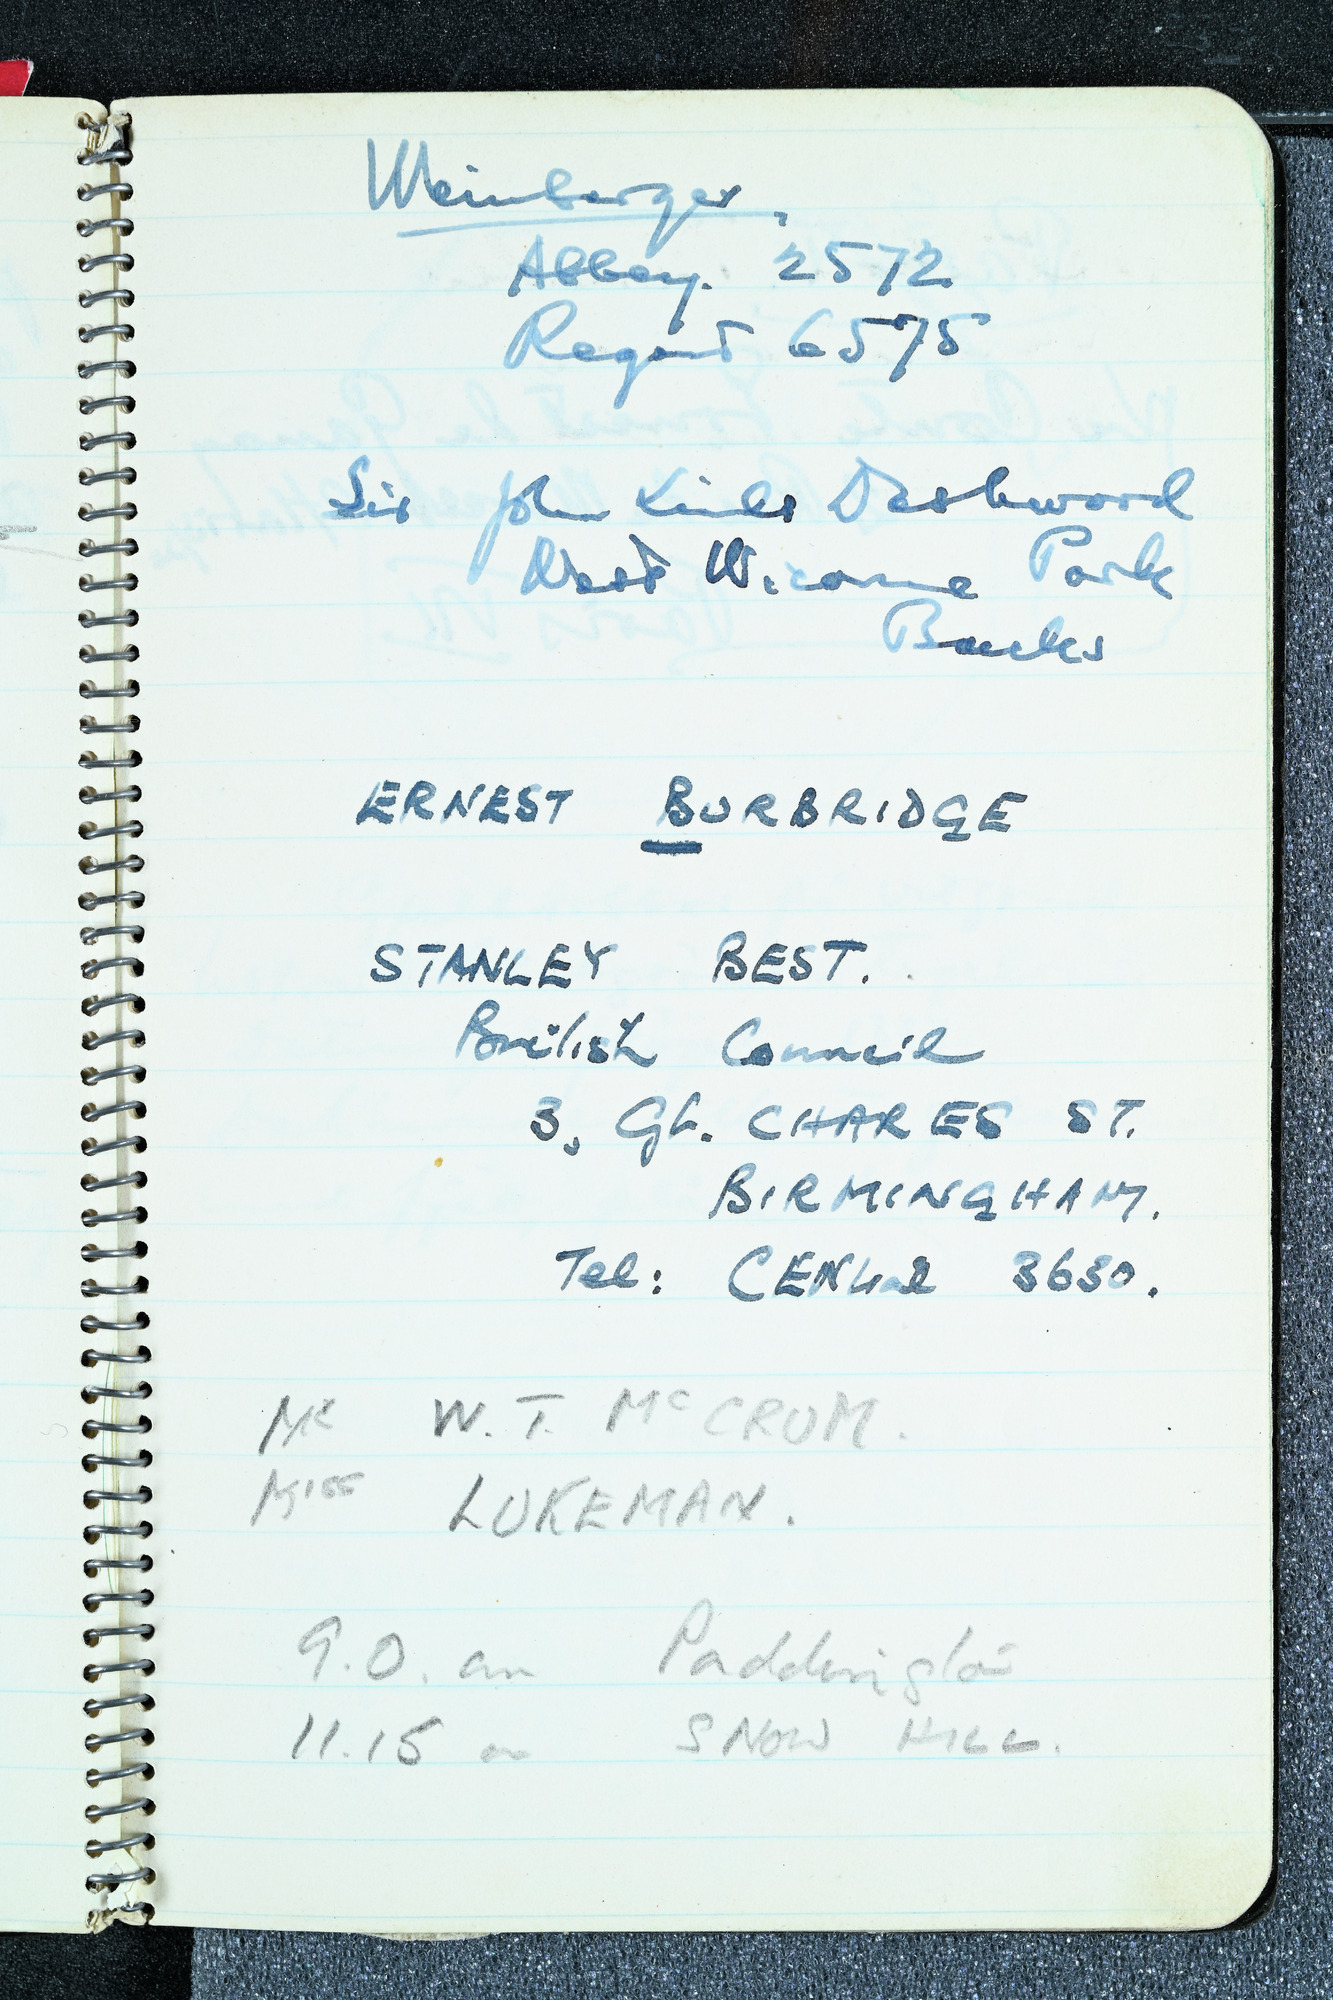 Weinberger,
Abbey. 2572
Regent 6575
Sir John Lindsay Dashwood
West Wicome Park
Bucks
ERNEST BURBRIDGE
STANLEY BEST.
British Council
3, Gt. CHARLES ST.
BIRMINGHAM.
Tel: CENtral 3630.
Mr W.T. McCRUM.
Miss LUKEMAN.
9.0. am Paddington
11.15 am SNOW HILL.